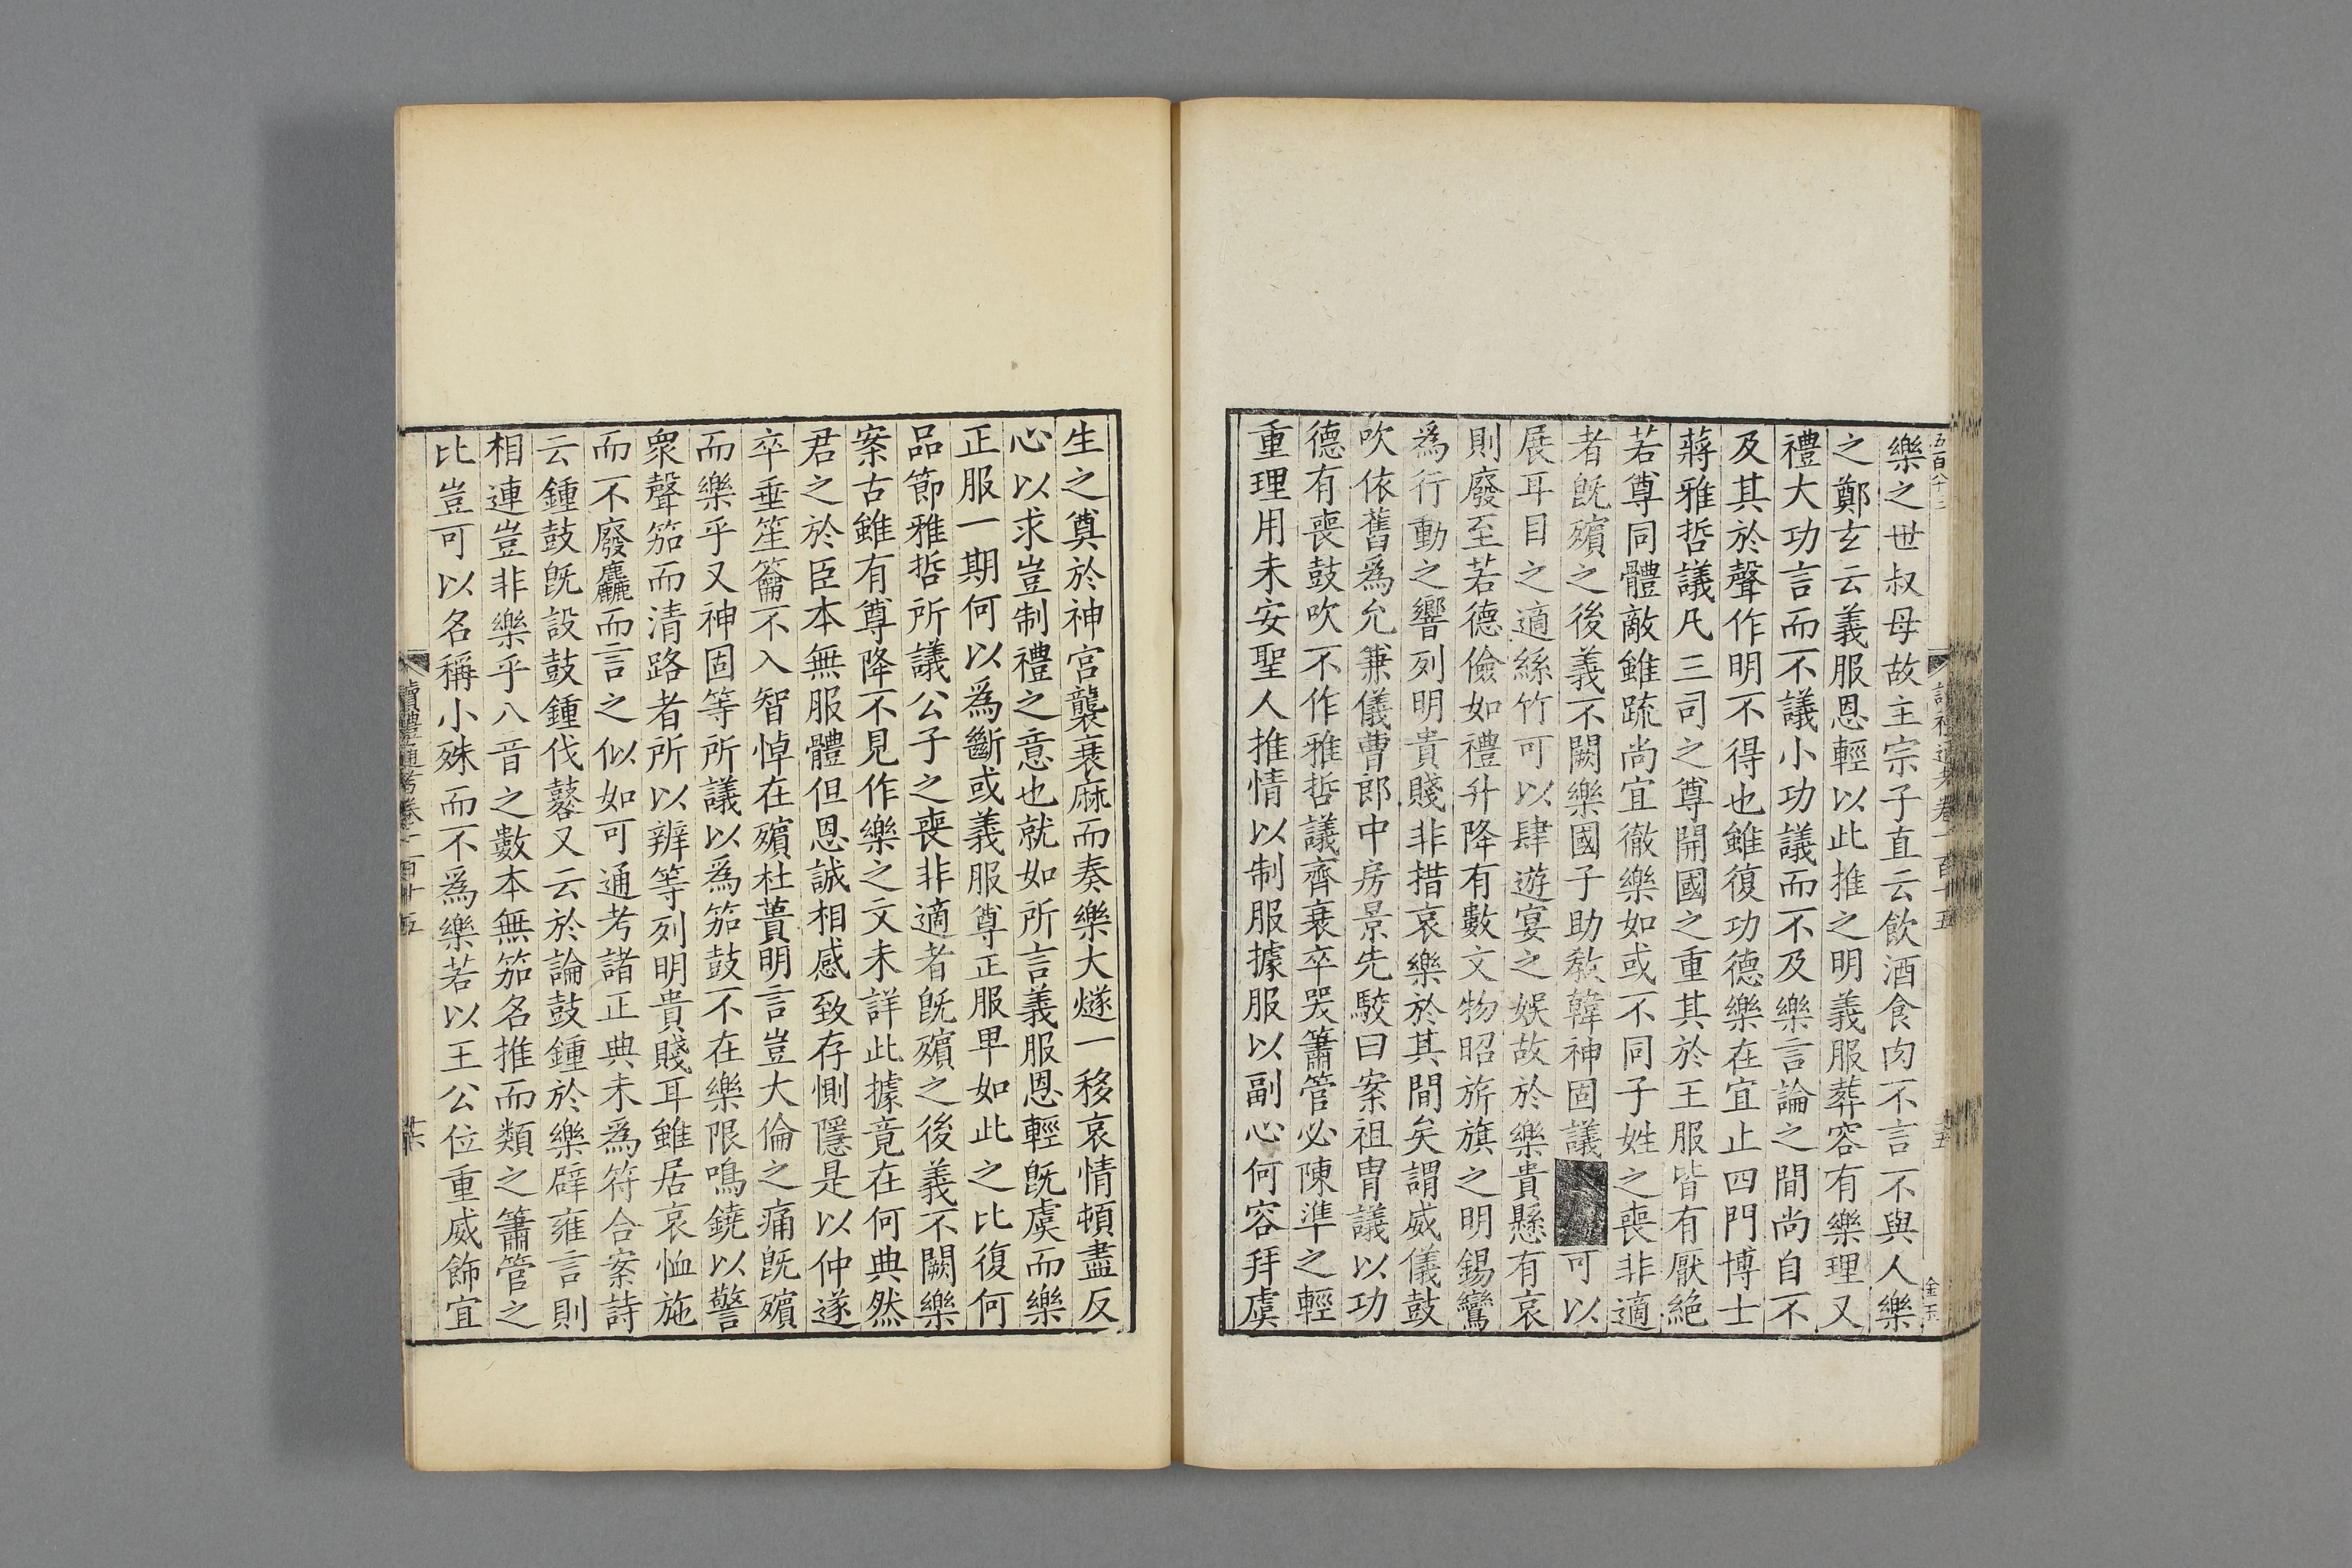 五百八十二
讀禮通考卷一百十五
廿五
金玉
樂之世叔母故主宗子直云飲酒食肉不言不與人樂
之鄭玄云義服恩輕以此推之明義服葬容有樂理又
禮大功言而不議小功議而不及樂言論之間尚自不
及其於聲作明不得也雖復功德樂在宜止四門博士
蔣雅哲議凡三司之尊開國之重其於王服皆有厭絕
若尊同體敵雖疏尚宜徹樂如或不同子姓之喪非適
者旣殯之後義不闕樂國子助敎韓神固議可以
展耳目之適絲竹可以肆遊宴之娛故於樂貴懸有哀
則廢至若德儉如禮升降有數文物昭旂旗之明錫鸞
爲行動之響列明貴賤非措哀樂於其間矣謂威儀鼓
吹依舊爲允兼儀曹郎中房景先駮曰案祖冑議以功
德有喪鼓吹不作雅哲議齊衰卒哭簫管必陳準之輕
重理用未安聖人推情以制服據服以副心何容拜虞
生之奠於神宮襲衰麻而奏樂大燧一移哀情頓盡反
心以求豈制禮之意也就如所言義服恩輕旣虞而樂
正服一期何以爲斷或義服尊正服卑如此之比復何
品節雅哲所議公子之喪非適者旣殯之後義不闕樂
案古雖有尊降不見作樂之文未詳此據竟在何典然
君之於臣本無服體但恩誠相感致存惻隱是以仲遂
卒垂笙籥不入智悼在殯杜蕢明言豈大倫之痛旣殯
而樂乎又神固等所議以爲笳鼓不在樂限鳴鐃以警
衆聲笳而清路者所以辨等列明貴賤耳雖居哀恤施
而不廢麤而言之似如可通考諸正典未爲符合案詩
云鍾鼓旣設鼓鍾伐鼛又云於論鼓鍾於樂辟雍言則
相連豈非樂乎八音之數本無笳名推而類之簫管之
比豈可以名稱小殊而不爲樂若以王公位重威飾宜
讀禮通考卷一百十五
廿六